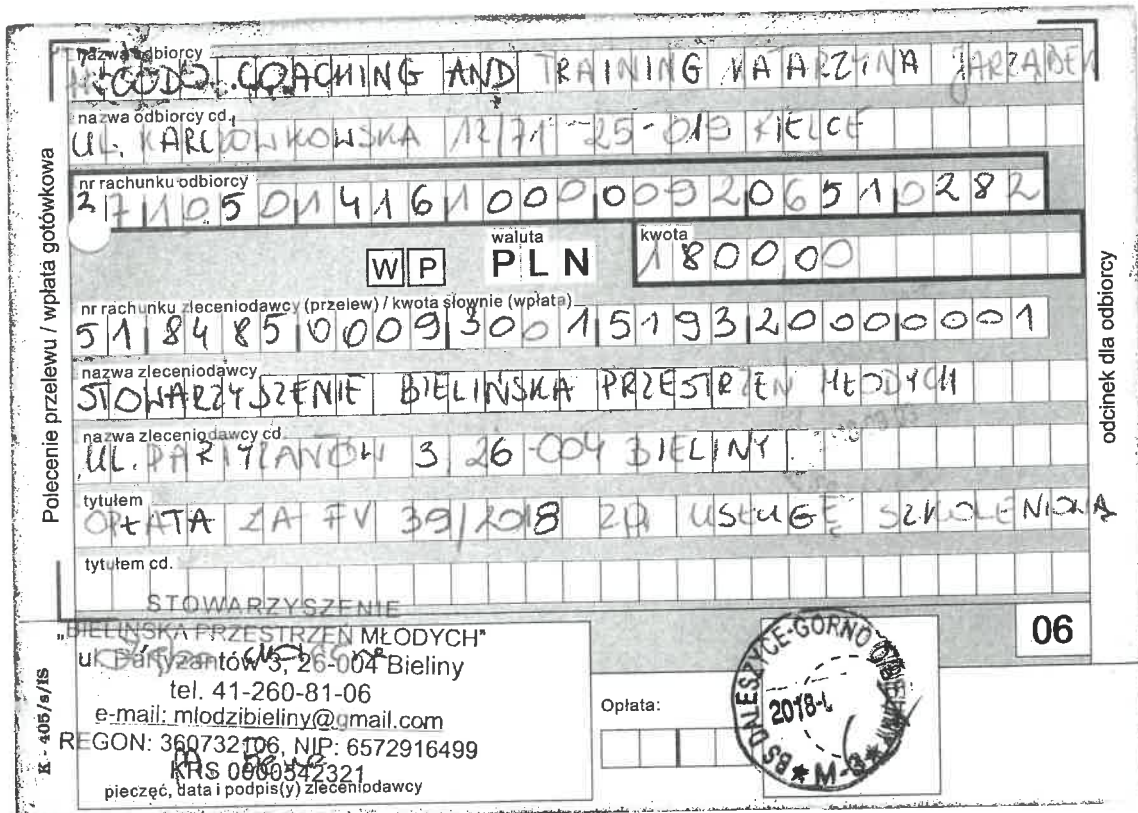 nazwa odbiorcy
GOOD COACHING AND TRAINING KATARZYNA JARZĄBEK
nazwa odbiorcy cd.
UL. KARCZÓWKOWSKA 12/71 25-019 KIELCE
nr rachunku odbiorcy
27105014161000009206510282
waluta
kwota
WP PLN 180000
nr rachunku zleceniodawcy (przelew) / kwota słownie (wpłata)
51848500093001519320000001
nazwa zleceniodawcy
STOWARZYSZENIE BIELIŃSKA PRZESTRZEŃ MŁODYCH
nazwa zleceniodawcy cd.
UL. PARTYZANTÓW 3 26-004 BIELINY
tytułem
OPŁATA ZA FV 39/2018 ZA USŁUGĘ SZKOLENIOWĄ
tytułem cd.
Polecenie przelewu / wpłata gotówkowa
odcinek dla odbiorcy
STOWARZYSZENIE
„BIELIŃSKA PRZESTRZEŃ MŁODYCH"
ul. Partyzantów 3, 26-004 Bieliny
tel. 41-260-81-06
e-mail: mlodzibieliny@gmail.com
REGON: 360732106, NIP: 6572916499
KRS 0000542321
pieczęć, data i podpis(y) zleceniodawcy
K - 405/s/IS
Opłata:
06
BS DALESZYCE-GÓRNO
2018-
★ M-3 ★